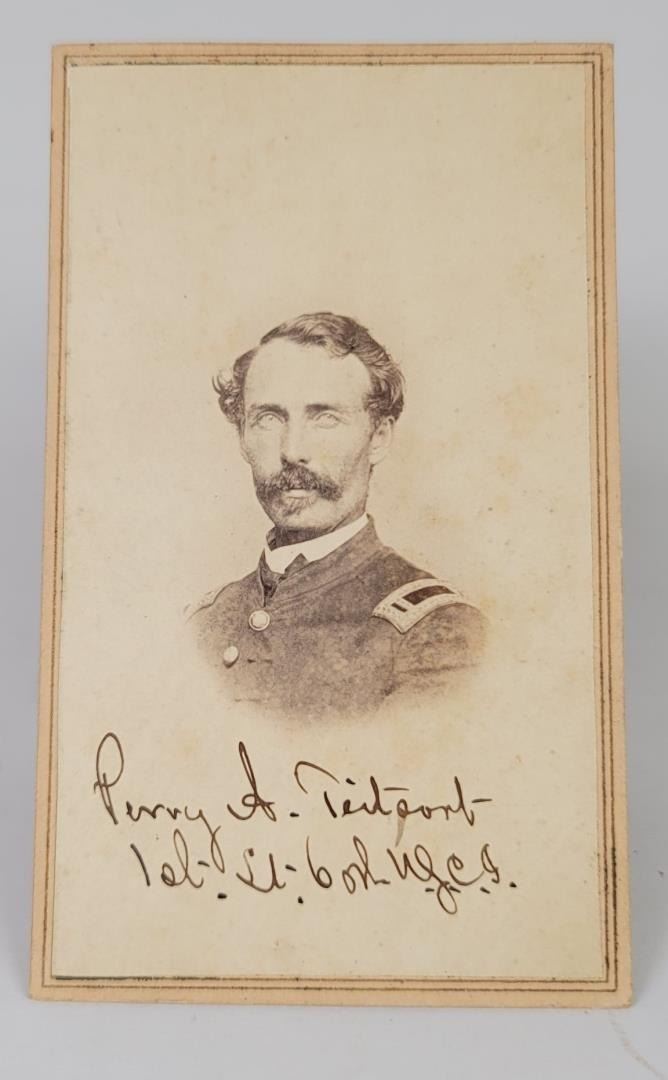 Perry A. Teitsort
1st. Lt. 60th U.S.C.I.